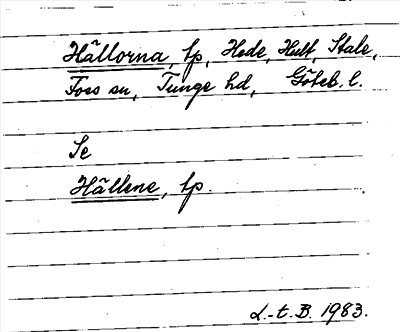 Hällorna, tp, Hede, Hult, Stale,
Foss sn, Tunge hd, Göteb. l.
Se
Hällene, tp.
L.-t. B. 1983.